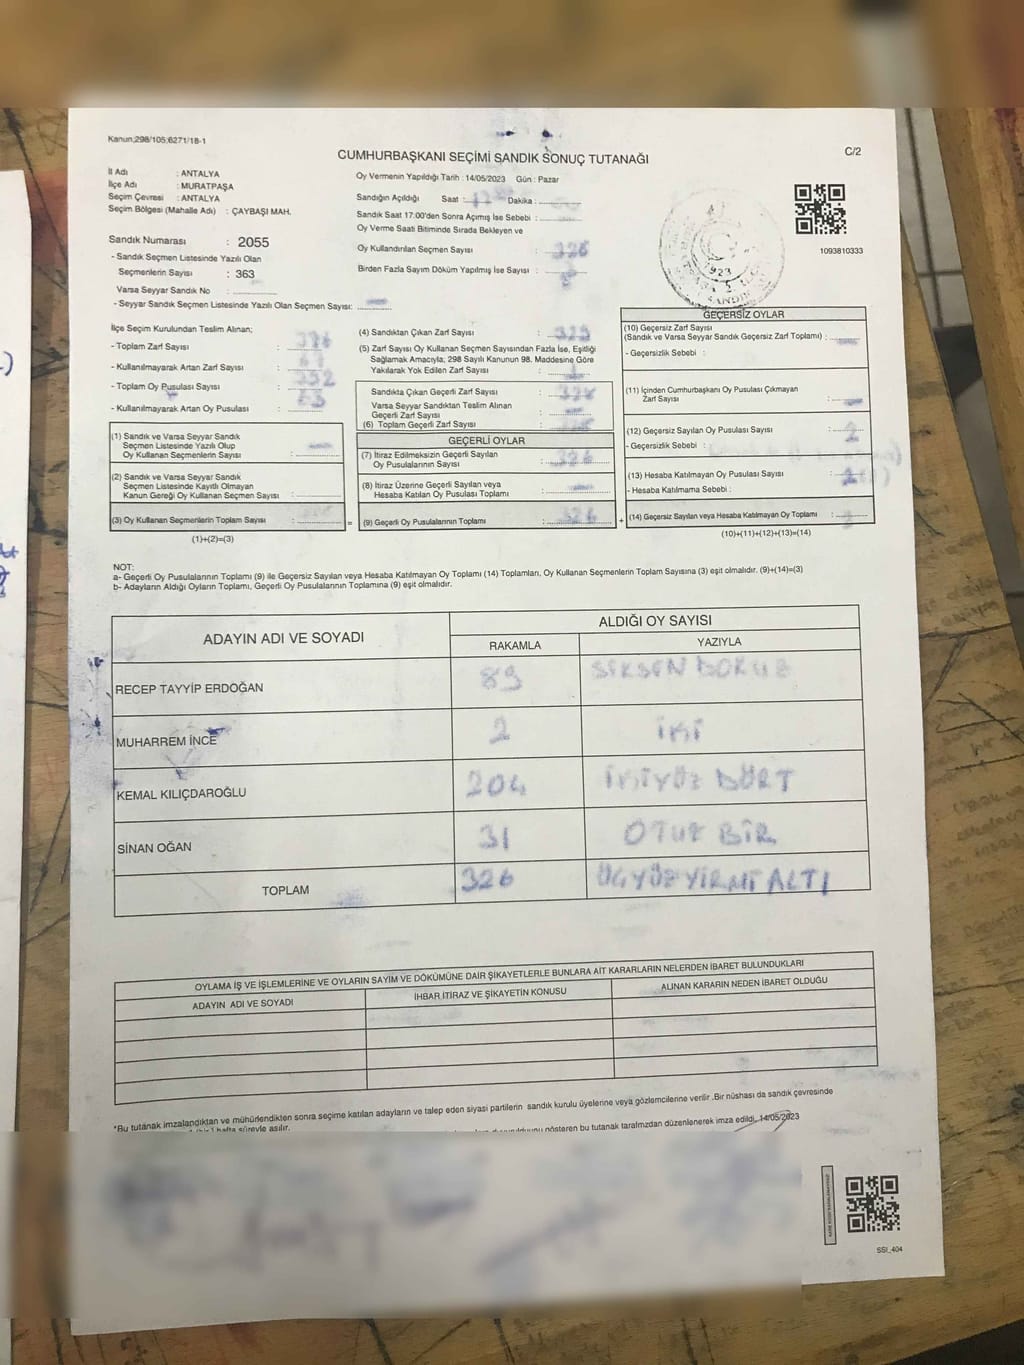 Kanun:298/105;6271/18-1
CUMHURBAŞKANI SEÇİMİ SANDIK SONUÇ TUTANAĞI
C/2
İl Adı : ANTALYA
İlçe Adı : MURATPAŞA
Seçim Çevresi : ANTALYA
Seçim Bölgesi (Mahalle Adı) : ÇAYBAŞI MAH.
Sandık Numarası : 2055
- Sandık Seçmen Listesinde Yazılı Olan
Seçmenlerin Sayısı : 363
Varsa Seyyar Sandık No :
- Seyyar Sandık Seçmen Listesinde Yazılı Olan Seçmen Sayısı:
Oy Vermenin Yapıldığı Tarih : 14/05/2023 Gün : Pazar
Sandığın Açıldığı Saat : Dakika :
Sandık Saat 17:00'den Sonra Açımış İse Sebebi :
Oy Verme Saati Bitiminde Sırada Bekleyen ve
Oy Kullandırılan Seçmen Sayısı :
Birden Fazla Sayım Döküm Yapılmış İse Sayısı :
1923
1093810333
İlçe Seçim Kurulundan Teslim Alınan;
- Toplam Zarf Sayısı :
- Kullanılmayarak Artan Zarf Sayısı :
- Toplam Oy Pusulası Sayısı : 352
- Kullanılmayarak Artan Oy Pusulası :
(1) Sandık ve Varsa Seyyar Sandık
Seçmen Listesinde Yazılı Olup
Oy Kullanan Seçmenlerin Sayısı :
(2) Sandık ve Varsa Seyyar Sandık
Seçmen Listesinde Kayıtlı Olmayan
Kanun Gereği Oy Kullanan Seçmen Sayısı :
(3) Oy Kullanan Seçmenlerin Toplam Sayısı :
(1)+(2)=(3)
=
(4) Sandıktan Çıkan Zarf Sayısı :
(5) Zarf Sayısı Oy Kullanan Seçmen Sayısından Fazla İse, Eşitliği
Sağlamak Amacıyla; 298 Sayılı Kanunun 98. Maddesine Göre
Yakılarak Yok Edilen Zarf Sayısı :
Sandıkta Çıkan Geçerli Zarf Sayısı :
Varsa Seyyar Sandıktan Teslim Alınan
Geçerli Zarf Sayısı :
(6) Toplam Geçerli Zarf Sayısı :
GEÇERLİ OYLAR
(7) İtiraz Edilmeksizin Geçerli Sayılan
Oy Pusulalarının Sayısı : 326
(8) İtiraz Üzerine Geçerli Sayılan veya
Hesaba Katılan Oy Pusulası Toplamı :
(9) Geçerli Oy Pusulalarının Toplamı : 326
+
GEÇERSİZ OYLAR
(10) Geçersiz Zarf Sayısı
(Sandık ve Varsa Seyyar Sandık Geçersiz Zarf Toplamı) :
- Geçersizlik Sebebi :
(11) İçinden Cumhurbaşkanı Oy Pusulası Çıkmayan
Zarf Sayısı :
(12) Geçersiz Sayılan Oy Pusulası Sayısı : 2
- Geçersizlik Sebebi :
(13) Hesaba Katılmayan Oy Pusulası Sayısı :
- Hesaba Katılmama Sebebi :
(14) Geçersiz Sayılan veya Hesaba Katılmayan Oy Toplamı :
(10)+(11)+(12)+(13)=(14)
NOT:
a- Geçerli Oy Pusulalarının Toplamı (9) ile Geçersiz Sayılan veya Hesaba Katılmayan Oy Toplamı (14) Toplamları, Oy Kullanan Seçmenlerin Toplam Sayısına (3) eşit olmalıdır. (9)+(14)=(3)
b- Adayların Aldığı Oyların Toplamı, Geçerli Oy Pusulalarının Toplamına (9) eşit olmalıdır.
ADAYIN ADI VE SOYADI
ALDIĞI OY SAYISI
RAKAMLA YAZIYLA
RECEP TAYYİP ERDOĞAN 89 SEKSEN DOKUZ
MUHARREM İNCE 2 İKİ
KEMAL KILIÇDAROĞLU 204 İKİYÜZ DÖRT
SİNAN OĞAN 31 OTUZ BİR
TOPLAM 326 ÜÇYÜZ YİRMİ ALTI
OYLAMA İŞ VE İŞLEMLERİNE VE OYLARIN SAYIM VE DÖKÜMÜNE DAİR ŞİKAYETLERLE BUNLARA AİT KARARLARIN NELERDEN İBARET BULUNDUKLARI
ADAYIN ADI VE SOYADI İHBAR İTİRAZ VE ŞİKAYETİN KONUSU ALINAN KARARIN NEDEN İBARET OLDUĞU
*Bu tutanak imzalandıktan ve mühürlendikten sonra seçime katılan adayların ve talep eden siyasi partilerin sandık kurulu üyelerine veya gözlemcilerine verilir .Bir nüshası da sandık çevresinde
hafta süreyle asılır.
gösteren bu tutanak tarafımızdan düzenlenerek imza edildi. 14/05/2023
SSI_404